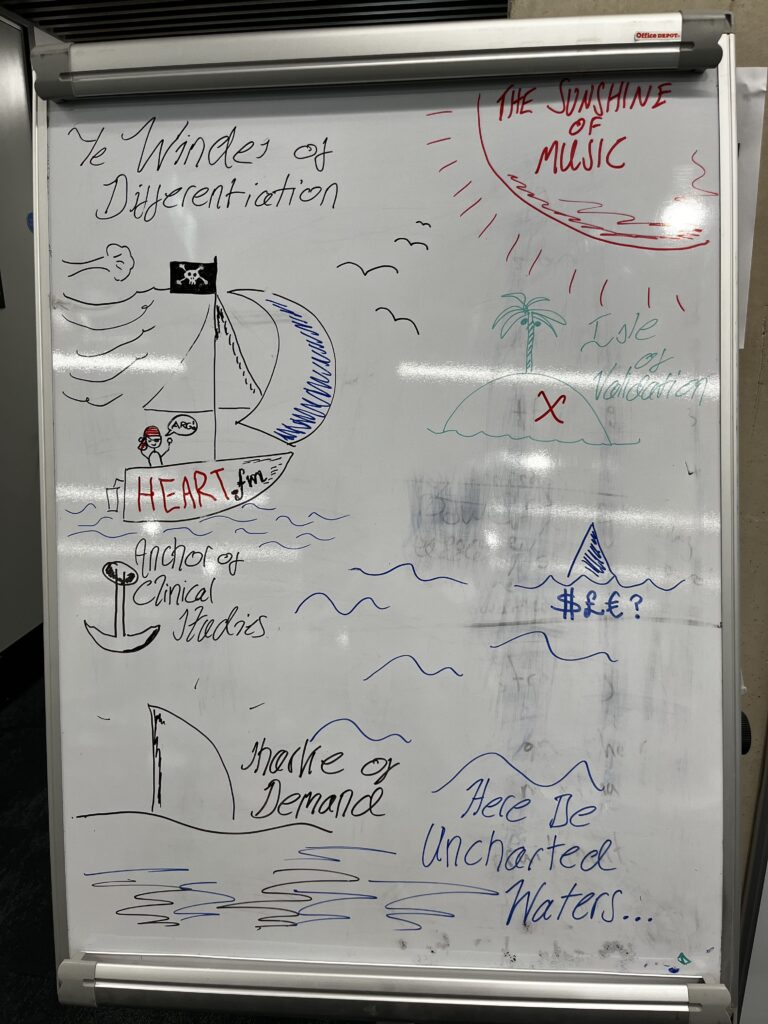 Office DEPOT
THE SUNSHINE
OF
MUSIC
Ye Windes of
Differentiation
Isle
of
Validation
X
ARG!
HEART.fm
Anchor of
Clinical
Studies
$££€?
Sharke of
Demand
Here Be
Uncharted
Waters...